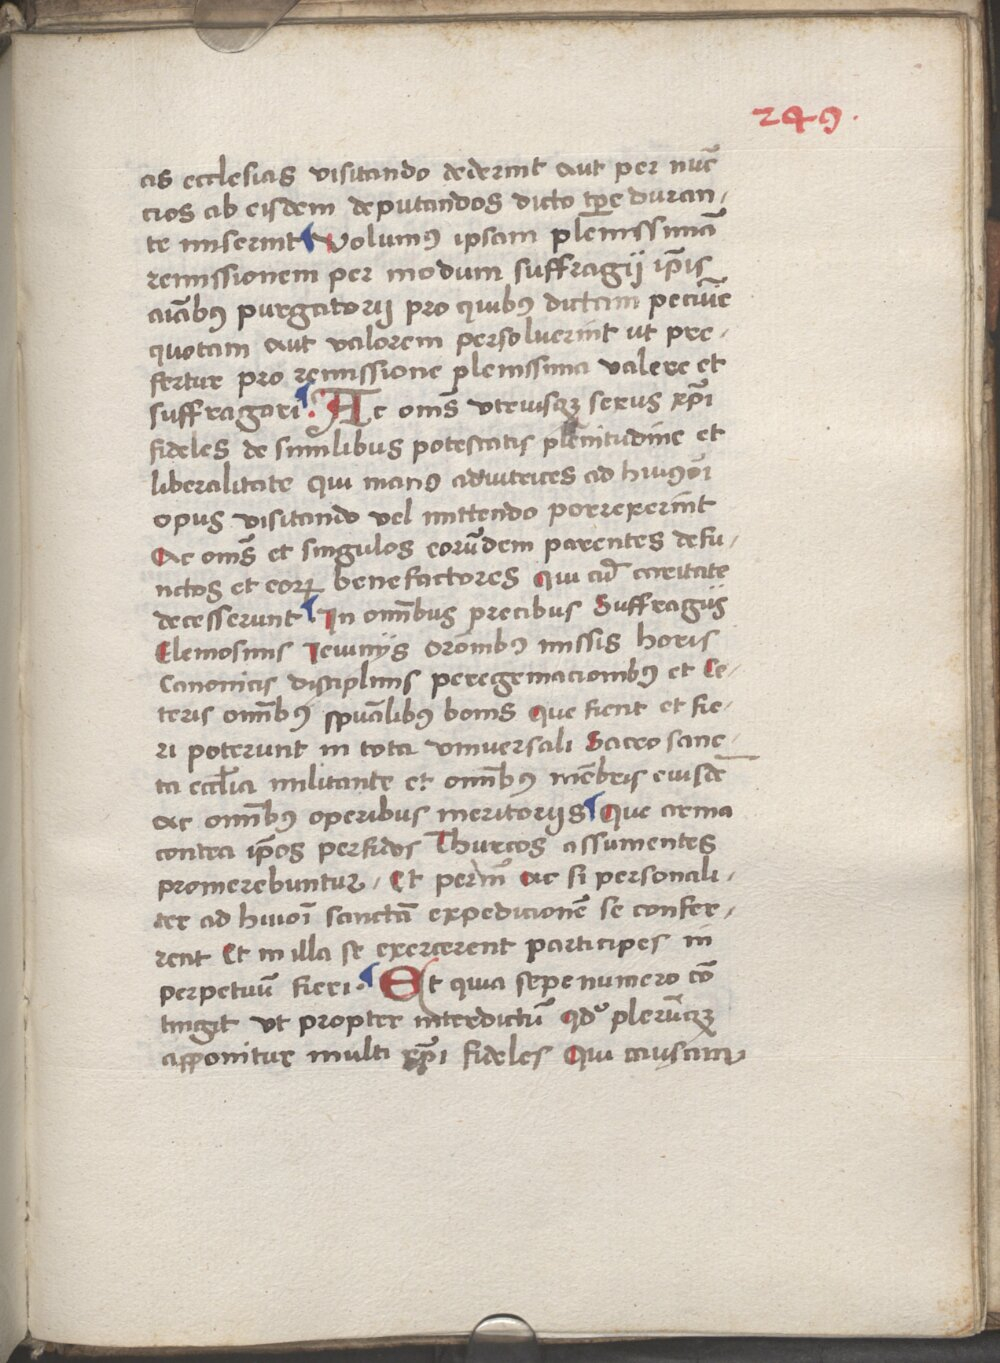 249.
as ecclesias visitando dederint aut per nūc
cios ab eisdem deputandos dicto tp̄e duran,
te miserint Volumꝰ ipsam plenissimā
remissionem per modum suffragij ip̄is
aīabꝰ purgatorij pro quibꝰ dictam pecuīe
quotam aut valorem persoluerint ut pre,
fertur pro remissione plenissima valere et
suffragari. Ac om̄s vtriusqꝫ sexus xp̄i
fideles de similibus potestatis plenitudine et
liberalitate qui manꝰ adiutrices ad huiꝰmōi
opus visitando vel mittendo porrexerint
Ac om̄s et singulos eorūdem parentes defu,
nctos et eoꝝ benefactores Qui cū caritate
decesserunt In om̄ibus precibus Suffragijs
Elemosinis Ieiunijs orōnibꝰ missis horis
Canonicis disciplinis peregrinacionibꝰ et Ce,
teris om̄ibꝰ spūalibꝰ bonis Que fient et fie,
ri poterunt in tota vniuersali Sacro sanc,
ta eccl̄ia militante et om̄ibꝰ mēbris eiusdē
ac om̄ibꝰ operibus meritorijs Que arma
contra ip̄os perfidos Thurcos assumentes
promerebuntur, Et perin̄ ac si personali,
ter ad huiōi sanctā expedicionē se confer,
rent Et in illa se exercerent participes in
perpetuū fieri. Et quia sepenumero cō
tingit vt propter interdictū qdͦ plerūqꝫ
apponitur multi xp̄i fideles Qui causam